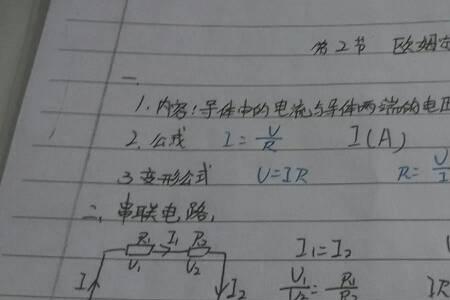 第2节 欧姆
一、
1、内容:导体中的电流与导体两端的电压
2、公式 I=U/R I(A)
3 变形公式 U=IR R=U/I
二、串联电路,
R₁ I₁ R₂ I₁=I₂
I U₁ U₂ I₂ U₁/U₂=R₁/R₂